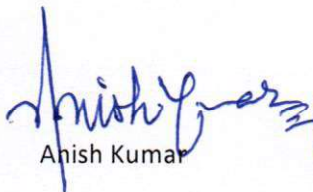 Anish Kumar
Anish Kumar